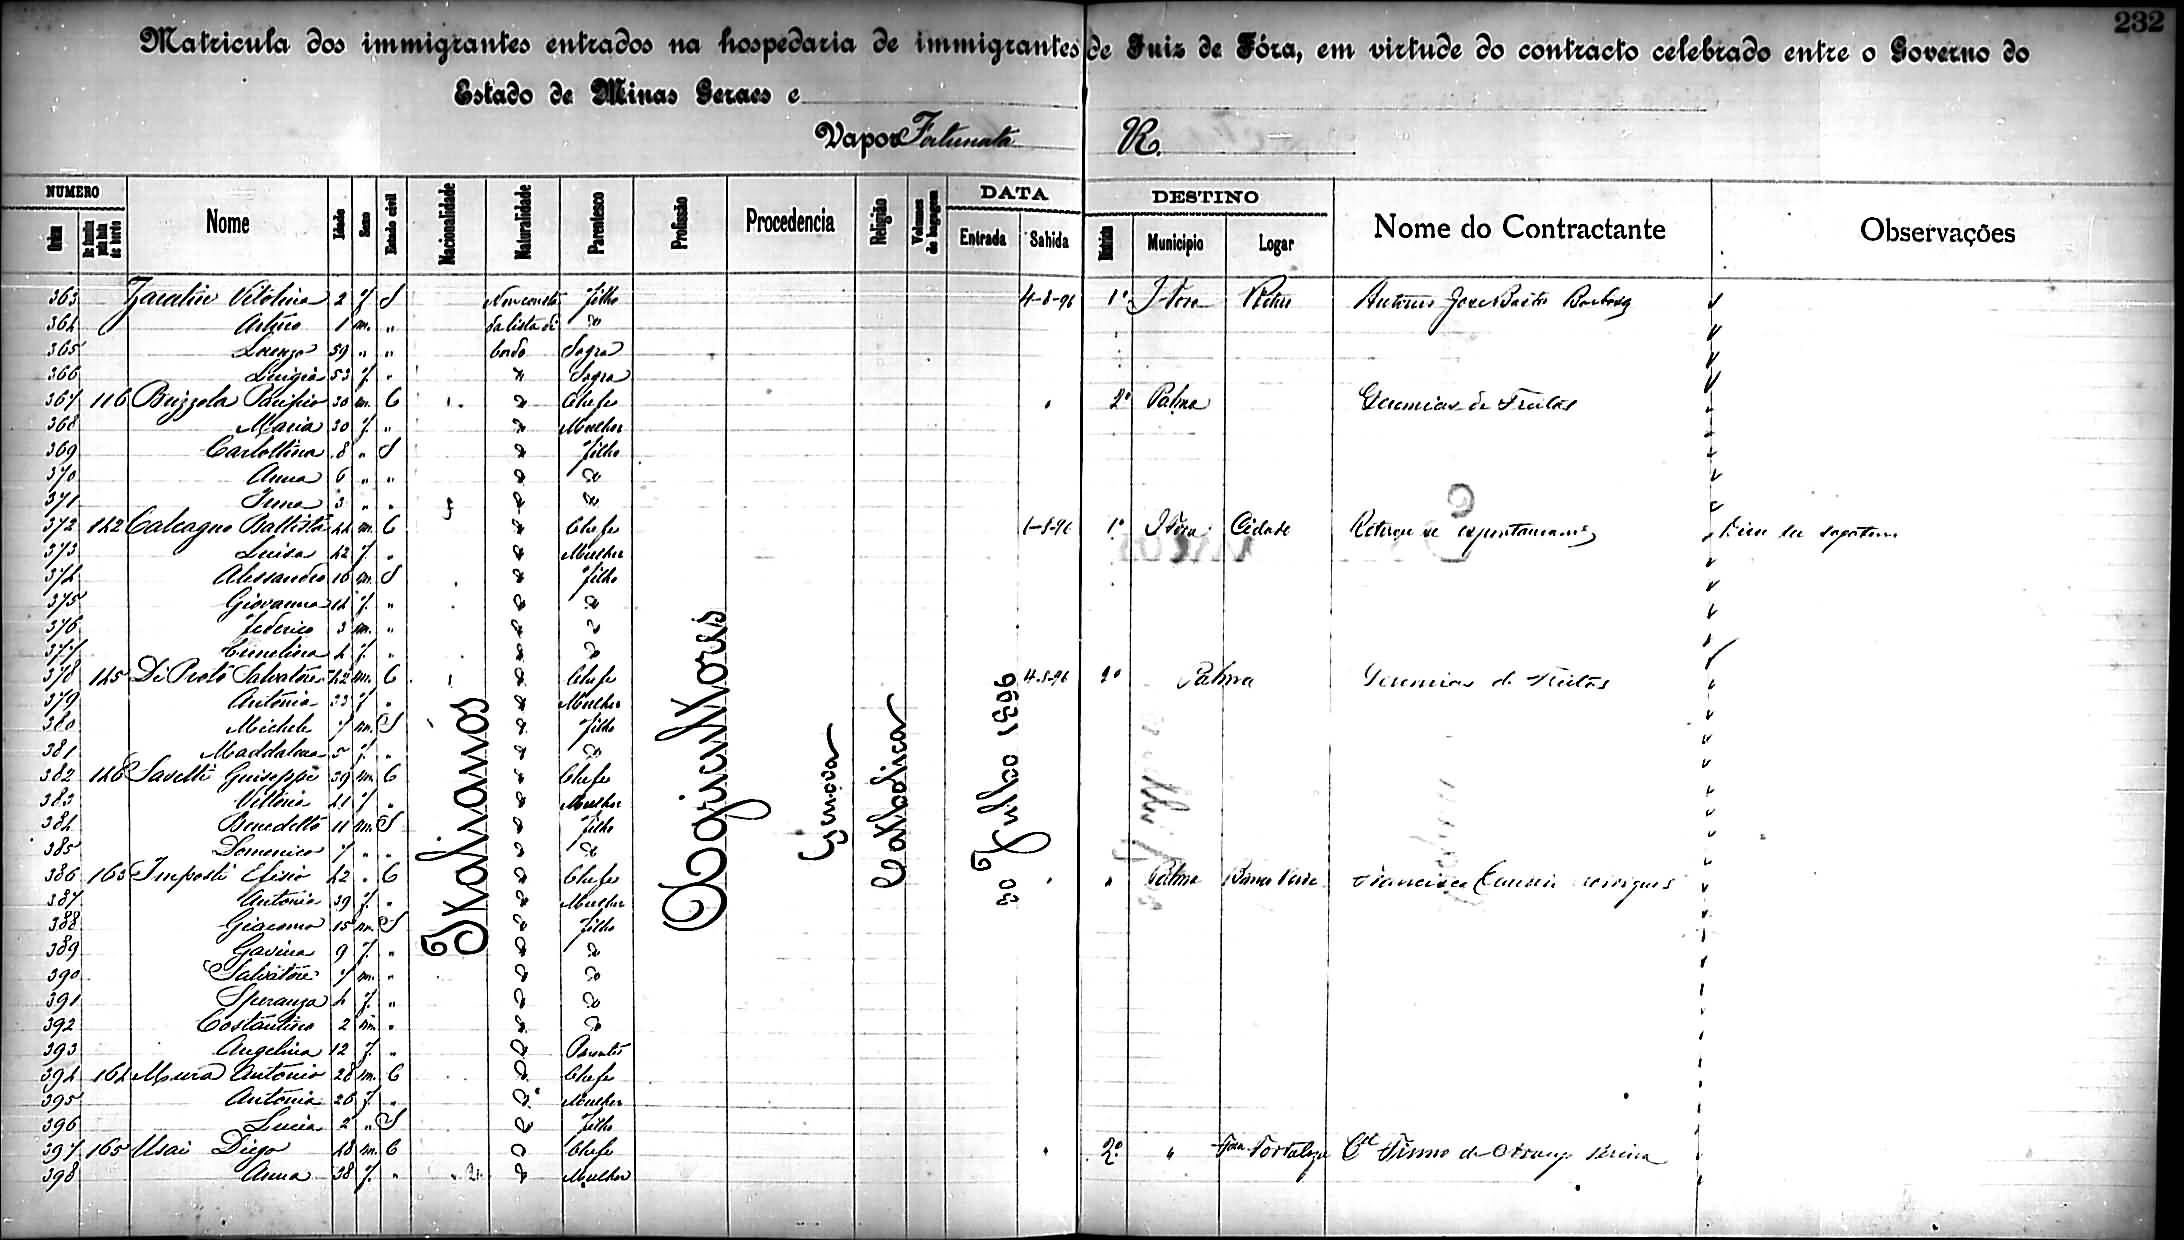 232
Matricula dos immigrantes entrados na hospedaria de immigrantes de Juiz de Fóra, em virtude do contracto celebrado entre o Governo do
Estado de Minas Geraes e
Vapor Fortunata R.
NUMERO Nome Idade Sexo Estado civil Nacionalidade Naturalidade Parentesco Profissão Procedencia Religião Volumes de bagagem DATA DESTINO Nome do Contractante Observações
Ordem De familia pela lista de bordo Entrada Sahida Districto Municipio Logar
Italianos Agricultores Genova Catholica 30 Julho 1896
363 Vitolina 2 f. S Non consta filho 4-8-96 1º J. Fora Antonio José Barbosa
364 Arturo 1 m. " da lista di "
365 Lorenzo 59 " " bordo Sogro
366 Luigia 53 f. " " Sogra
367 116 Buzzola Pacifico 30 m. C " Chefe 2º Palma Geremias de Freitas
368 Maria 30 f. " " Mulher
369 Carlottina 8 " S " filho
370 Anna 6 " " " "
371 Irma 3 " " " "
372 142 Calcagno Battista 44 m. C " Chefe 1-8-96 1º J. Fora Cidade Retirou se espontaneam.
373 Luisa 42 f. " " Mulher
374 Alessandro 16 m. S " filho
375 Giovanna 14 f. " " "
376 Federico 3 m. " " "
377 4 f. " " "
378 145 Di Proto Salvatore 42 m. C " Chefe 4-8-96 2º Palma Geremias de Freitas
379 Antonia 33 f. " " Mulher
380 Michele 7 m. S " filho
381 Maddalena 5 f. " " "
382 146 Savelli Guiseppe 39 m. C " Chefe
383 Vittoria 41 f. " " Mulher
384 Benedetto 11 m. S " filho
385 Domenico 7 " " " "
386 163 Imposti Efisio 42 " C " Chefe " " Palma Francisco
387 Antonia 39 f. " " Mulher
388 Giacomo 15 m. S " filho
389 Gavina 9 f. " " "
390 Salvatore 7 m. " " "
391 Speranza 4 f. " " "
392 Costantino 2 m. " " "
393 Angelina 12 f. " " Parente
394 164 Mura Antonio 28 m. C " Chefe
395 Antonia 26 f. " " Mulher
396 Lucia 2 " S " filho
397 165 Usai Diego 48 m. C " Chefe " 2º " Fortaleza Cel Firmo de Araujo
398 Anna 38 f. " " Mulher